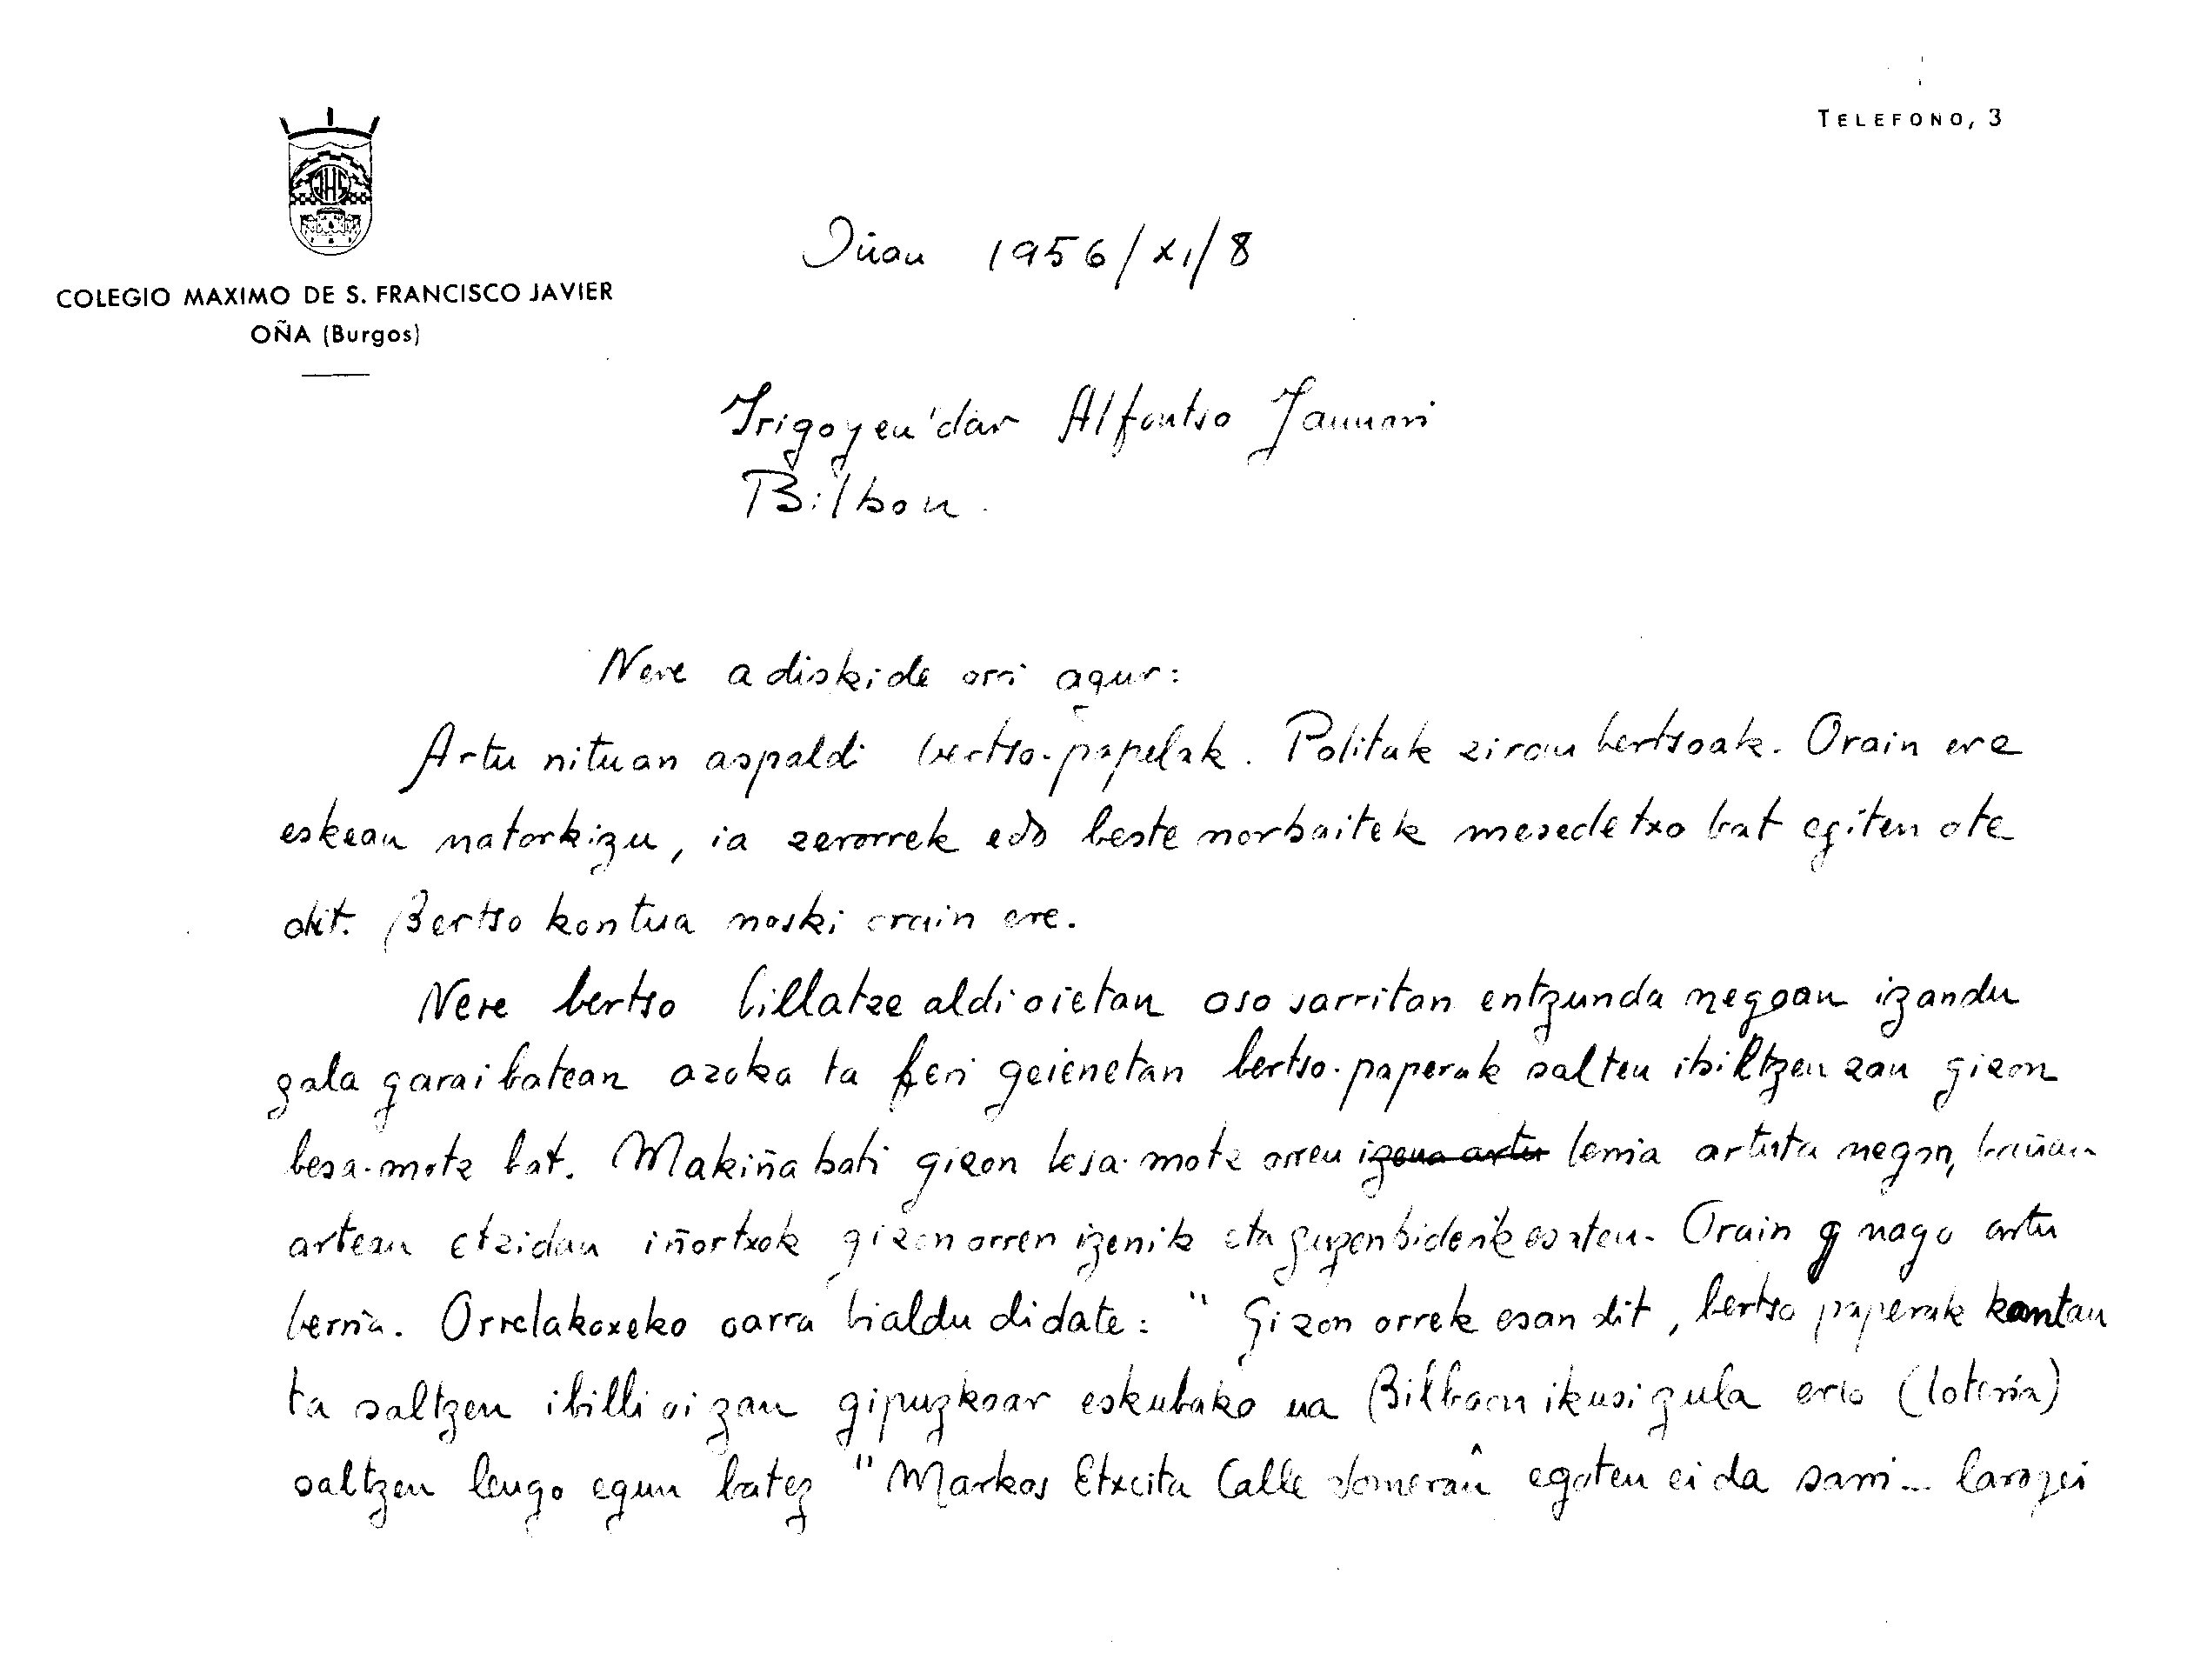 TELEFONO, 3
JHS
COLEGIO MAXIMO DE S. FRANCISCO JAVIER
OÑA (Burgos)
Oñan 1956/XI/8
Irigoyen'dar Alfontso Jaunari
Bilbon.
Nere adiskide orri agur:
Artu nituan aspaldi bertso-papelak. Politak ziran bertsoak. Orain ere
eskean natorkizu, ia zerorrek edo beste norbaitek mesedetxo bat egiten ote
dit. Bertso kontua noski orain ere.
Nere bertso billatze aldi oietan oso sarritan entzunda negoan izandu
zala garai batean azoka ta feri geienetan bertso-paperak salten ibiltzen zan gizon
besa-motz bat. Makiña bati gizon besa-motz orren izena artu berria artuta negon, bañan
artean etzidan iñortxok gizon orren izenik eta zuzenbiderik esaten. Orain nago artu
berria. Orrelakoxeko oarra bialdu didate: "Gizon orrek esan dit, bertso paperak kantan
ta saltzen ibilli oi zan gipuzkoar eskubako ua Bilbaon ikusi zula erio (loteria)
saltzen lengo egun batez" Markos Etxeita Calle Someran egoten ei da sarri... larogei